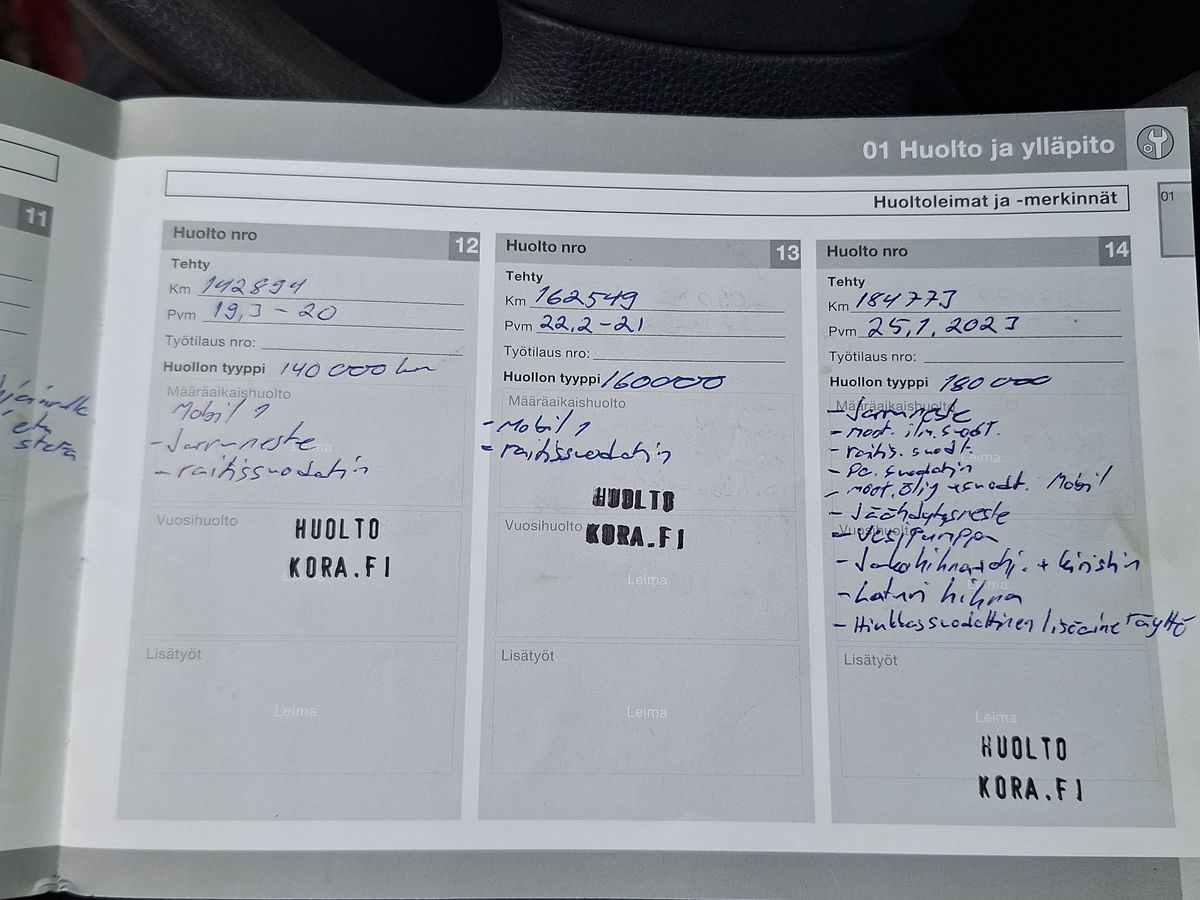 01 Huolto ja ylläpito
01
Huoltoleimat ja -merkinnät
11
Huolto nro 12
Tehty
Km 142894
Pvm 19,3 - 20
Työtilaus nro:
Huollon tyyppi 140 000 km
Määräaikaishuolto
Mobil 1
- Jarruneste
- raitissuodatin
Leima
Vuosihuolto
HUOLTO
KORA.FI
Lisätyöt
Leima
Huolto nro 13
Tehty
Km 162549
Pvm 22,2 - 21
Työtilaus nro:
Huollon tyyppi 160000
Määräaikaishuolto
- Mobil 1
- raitissuodatin
HUOLTO
Vuosihuolto
KORA.FI
Leima
Lisätyöt
Leima
Huolto nro 14
Tehty
Km 184773
Pvm 25,1, 2023
Työtilaus nro:
Huollon tyyppi 180 000
Määräaikaishuolto
- Jarruneste
- moot. ilm. suod.
- raitis. suodt.
Leima
- pa. suodatin
- moot. öljy + suodt. Mobil
- Jäähdytysneste
Vuosihuolto
- Vesipumppu
- Jakohihna + ohj. + kiristin
Leima
- Laturi hihna
- Hiukkassuodattimen lisäaine täyttö
Lisätyöt
Leima
HUOLTO
KORA.FI